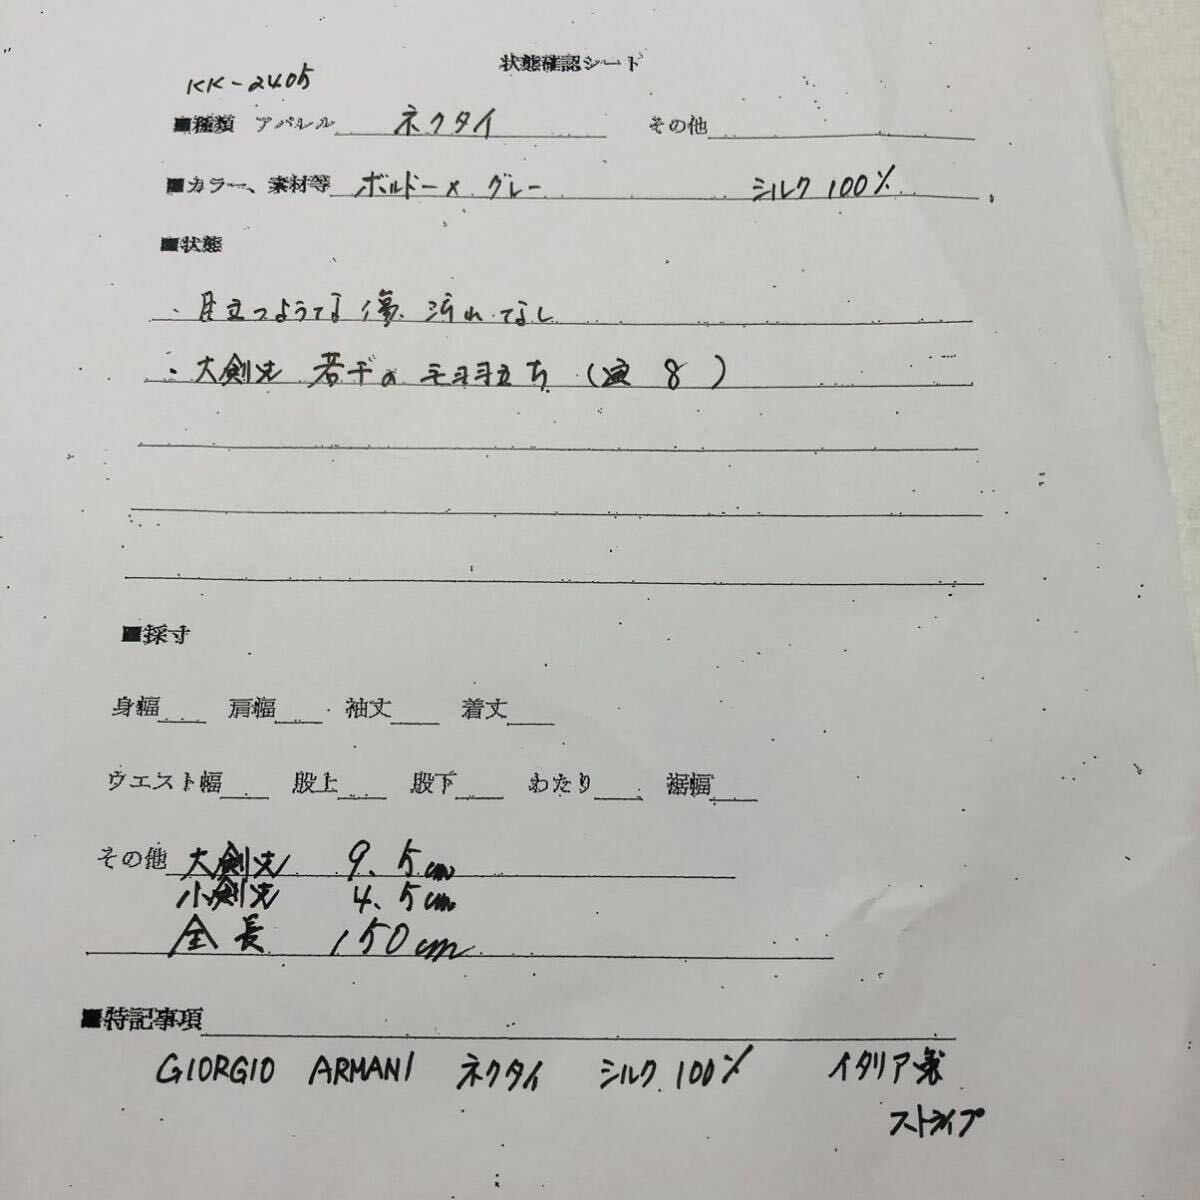 状態確認シート
KK-2405
■種類 アパレル ネクタイ その他
■カラー、素材等 ボルドー× グレー シルク 100%
■状態
・目立つような傷、汚れなし
・大剣先 若干の毛羽立ち ( 8 )
■採寸
身幅 肩幅 袖丈 着丈
ウエスト幅 股上 股下 わたり 裾幅
その他 大剣先 9.5cm
小剣先 4.5cm
全長 150cm
■特記事項
GIORGIO ARMANI ネクタイ シルク 100% イタリア製
ストライプ